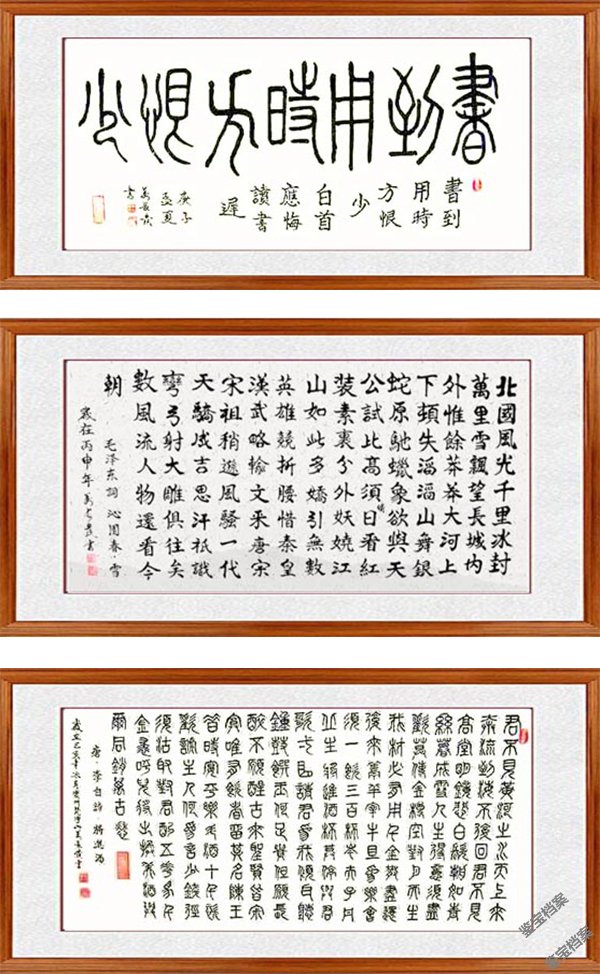 書到用時方恨少
書到
用時
方恨
少
白首
應悔
讀書
遲
庚子
孟夏
書
北國風光千里冰封
萬里雪飄望長城內
外惟餘莽莽大河上
下頓失滔滔山舞銀
蛇原馳蠟象欲與天
公試比高須晴日看紅
裝素裹分外妖嬈江
山如此多嬌引無數
英雄競折腰惜秦皇
漢武略輸文采唐宗
宋祖稍遜風騷一代
天驕成吉思汗祇識
彎弓射大雕俱往矣
數風流人物還看今
朝
毛澤東詞沁園春·雪
歲在丙申年 書
君不見黃河之水天上來
奔流到海不復回君不見
高堂明鏡悲白髮朝如青
絲暮成雪人生得意須盡
歡莫使金樽空對月天生
我材必有用千金散盡還
復來烹羊宰牛且為樂會
須一飲三百杯岑夫子丹
丘生將進酒杯莫停與君
歌一曲請君為我傾耳聽
鐘鼓饌玉何足貴但願長
醉不願醒古來聖賢皆寂
寞唯有飲者留其名陳王
昔時宴平樂斗酒十千恣
歡謔主人何為言少錢徑
須沽取對君酌五花馬千
金裘呼兒將出換美酒與
爾同銷萬古愁
唐·李白詩·將進酒
歲在己亥年 書
鉴宝档案
鉴宝档案